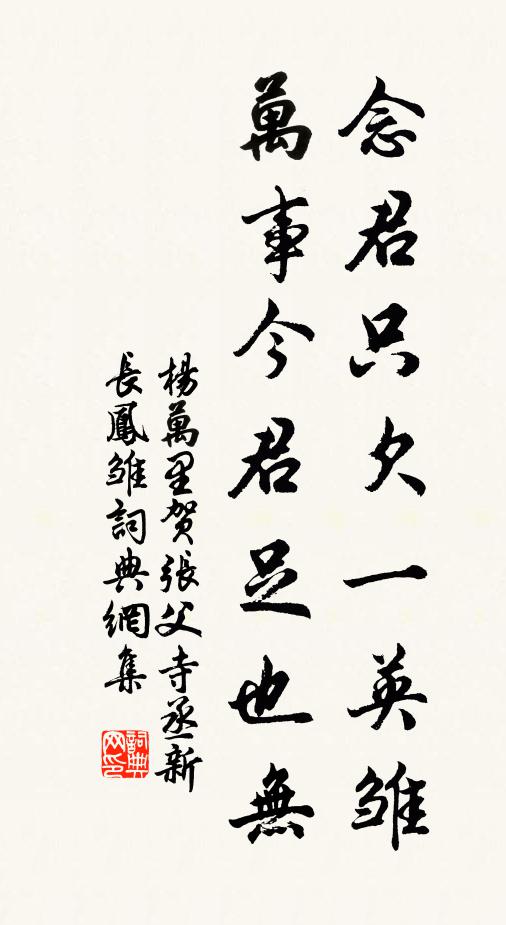 念君只欠一英雏
萬事今君足也無
楊萬里贺張父寺丞新
長鳳雏詞典網集
詞典网印